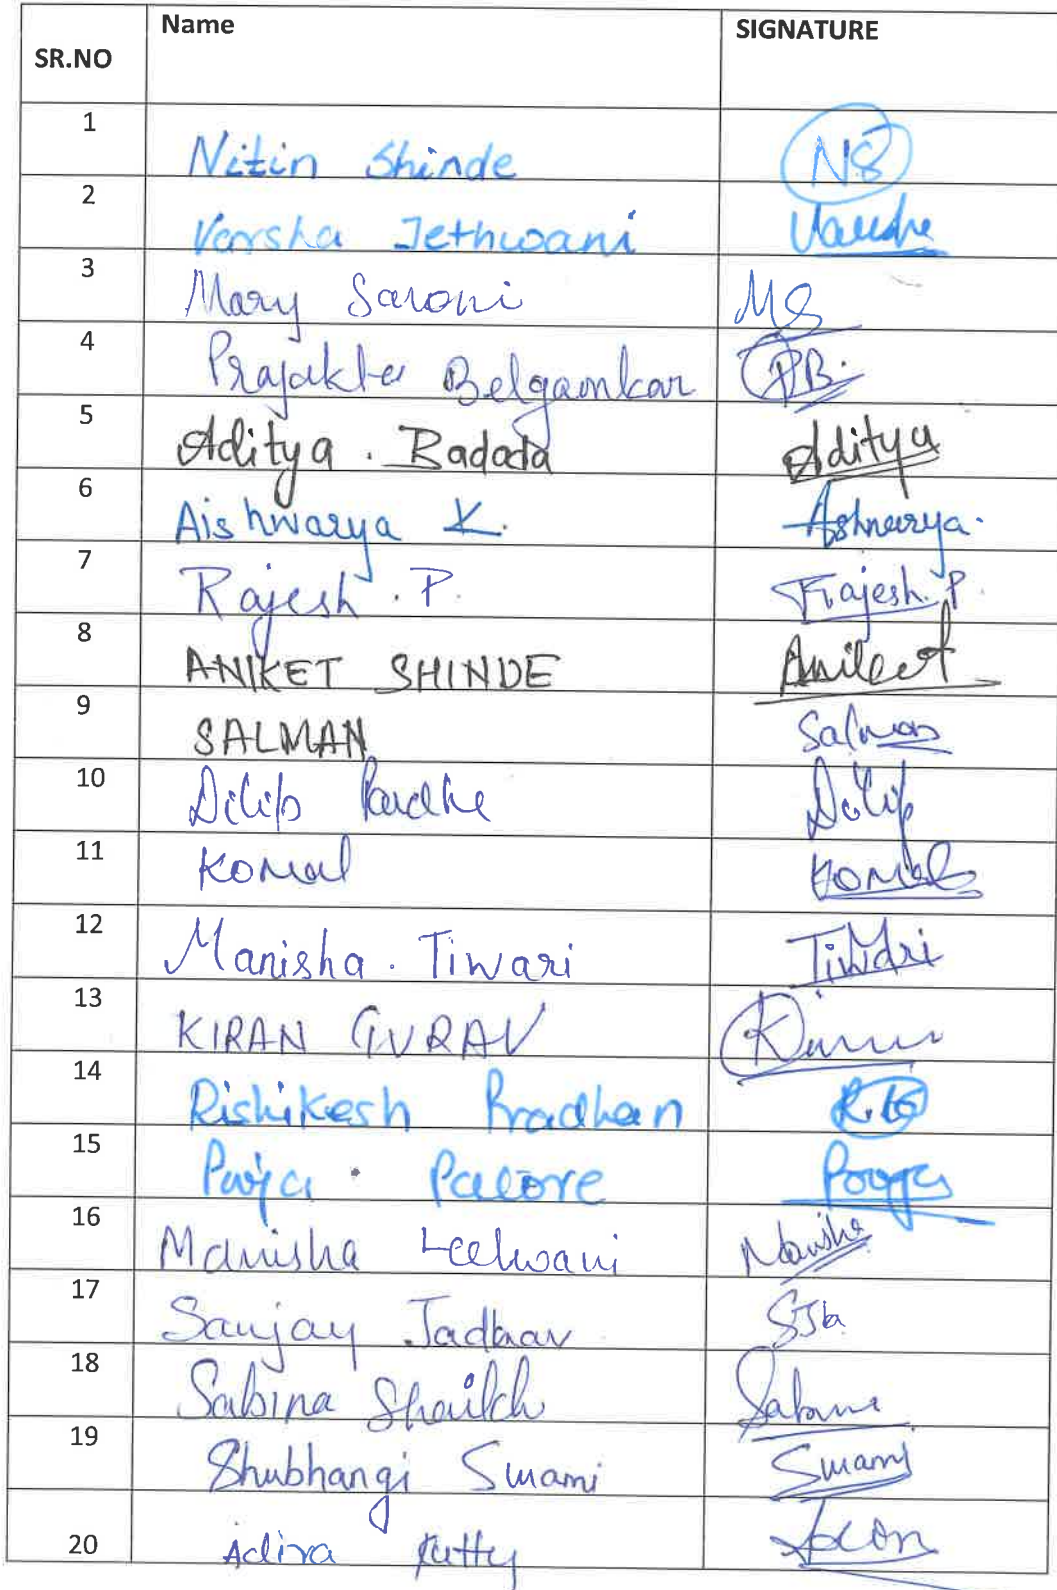 SR.NO Name SIGNATURE
1 Nitin Shinde NS
2 Varsha Jethwani Varsha
3 Mary Saroni MS
4 Prajakta Belgamkar PB.
5 Aditya . Badada Aditya
6 Aishwarya K. Ashwarya.
7 Rajesh . P. Rajesh. P.
8 ANIKET SHINDE Aniket
9 SALMAN Salman
10 Dilip Pardhe Dilip
11 Komal Komal
12 Manisha . Tiwari Tiwari
13 KIRAN GURAV Kiran
14 Rishikesh Pradhan
15 Puja . Palore Pooja
16 Manisha Leelwani
17 Sanjay Jadhav
18 Sabina Shaikh Sabina
19 Shubhangi Swami Swami
20 Adiva Kutty